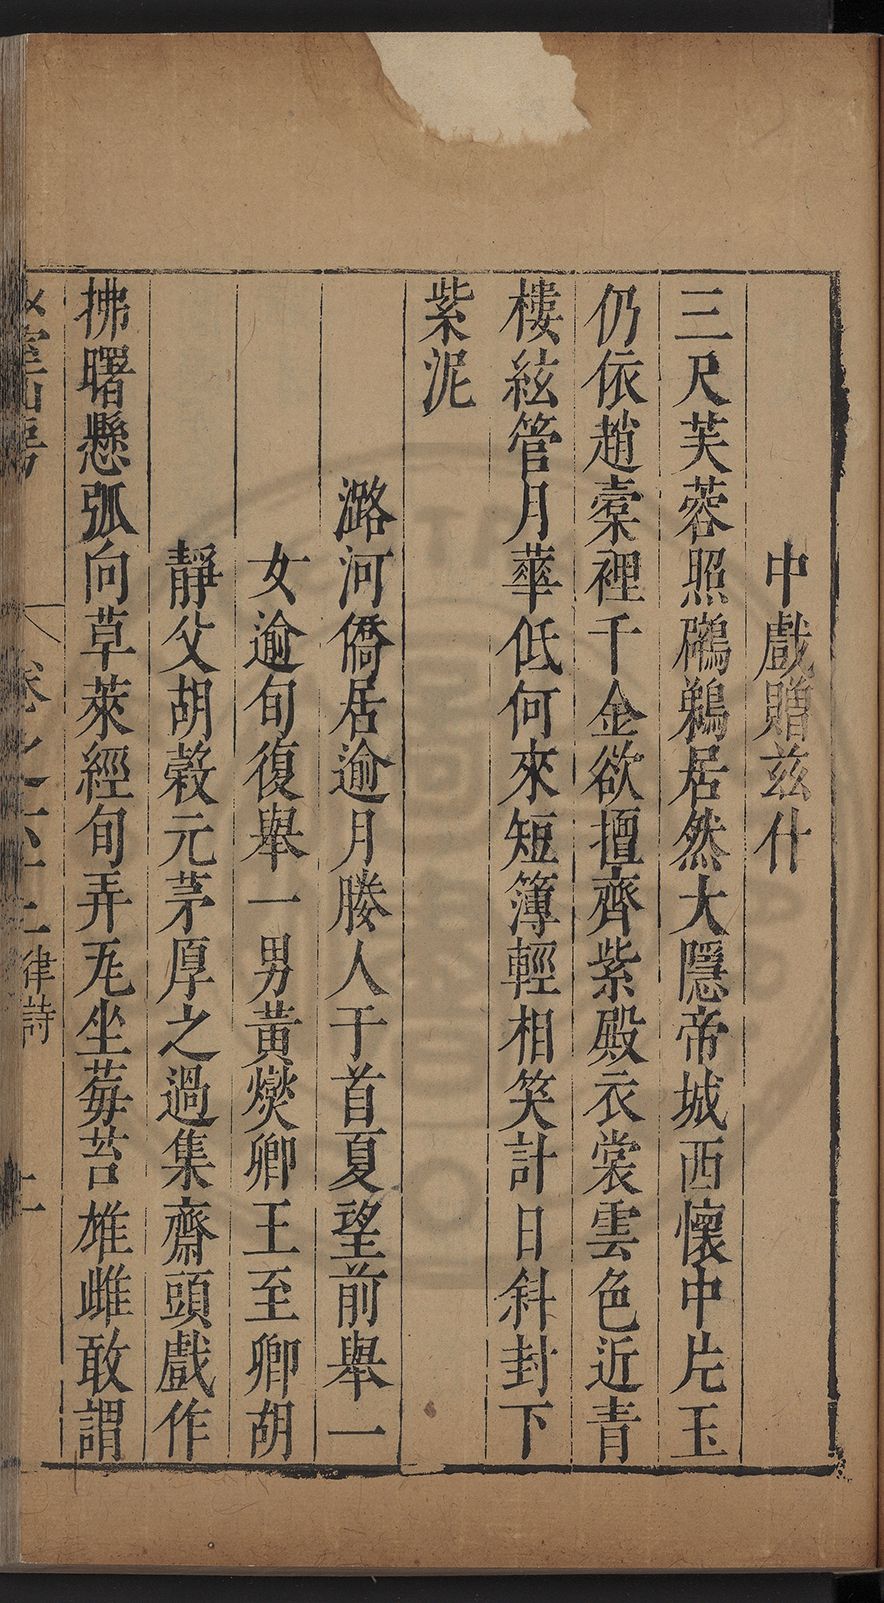 中戲贈兹什
三尺芙蓉照鸊鵜居然大隱帝城西懷中片玉
仍依趙橐裡千金欲擅齊紫殿衣裳雲色近青
樓絃管月華低何來短簿輕相笑計日斜封下
紫泥
潞河僑居逾月媵人于首夏望前舉一
女逾旬復舉一男黃爕卿王至卿胡
靜父胡榖元茅厚之過集齋頭戲作
拂曙懸弧向草萊經旬弄瓦坐莓苔雄雌敢謂
山房
卷之五十
律詩